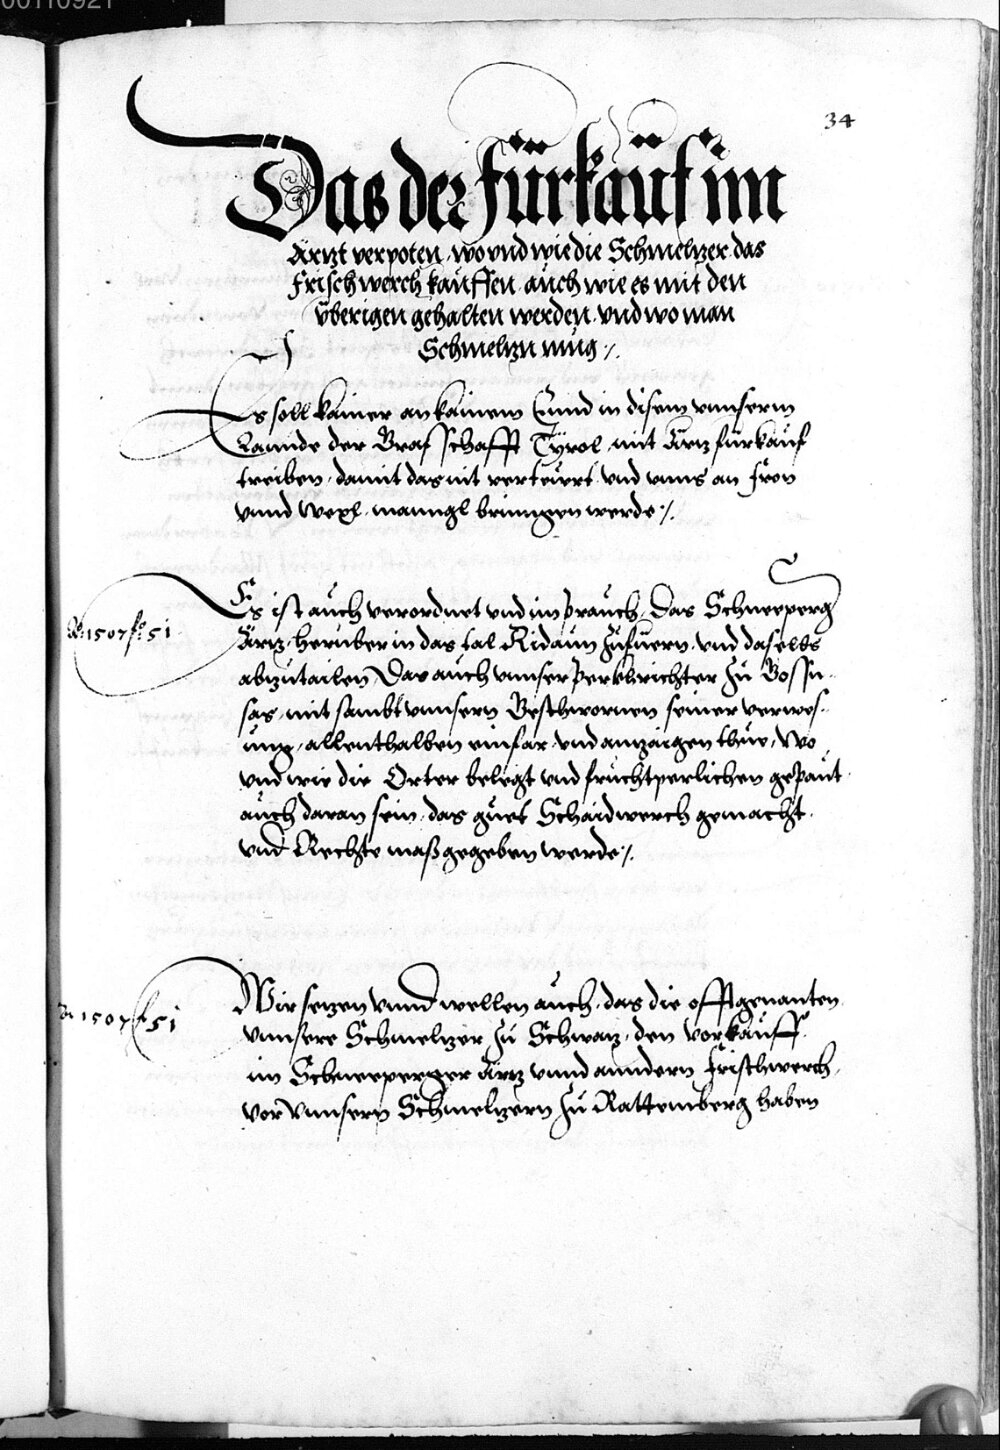 34
Das der fürkauf im
Ärtzt verpoten, wo vnd wie die Schmeltzer das
Frischwerch kauffen, auch wie es mit den
vberigen gehalten werden, vnd wo man
Schmeltzn mug ·/.
Es soll kainer an kainem Ennd in disem vnnserm
Lannde der Graf Schafft Tyrol, mit Ärtz fürkauf
treiben, damit das nit verteürt, vnd vnns an Fron
vnnd Wexl, manngl bringen werde ·/.
Es ist auch verordnet vnd im prauch, Das Schneeperg
Ao 1507 fo 51
Ärtz, herüber in das tal Ridaun zufüern, vnd daselbs
abzutailen, Das auch vnnser Perkhrichter zu Gossn-
sas, mit sambt vnnsern Geschwornen seiner verwes-
ung, allenthalben einfar, vnd antzaigen thue, Wo
vnd wie die Örter belegt vnd fruchtperlichen gepaut
auch daran sein, das guet Schaidwerch gemacht
vnd Rechte maß gegeben werde ·/.
Wir setzen vnnd wellen auch, das die offtgenanten
Ao 1507 fo 51
vnnsere Schmeltzer zu Schwatz, den vorkauff
im Schneeperger Ärtz vnnd anndern Frischwerch,
vor vnnsern Schmeltzern zu Rattemberg haben